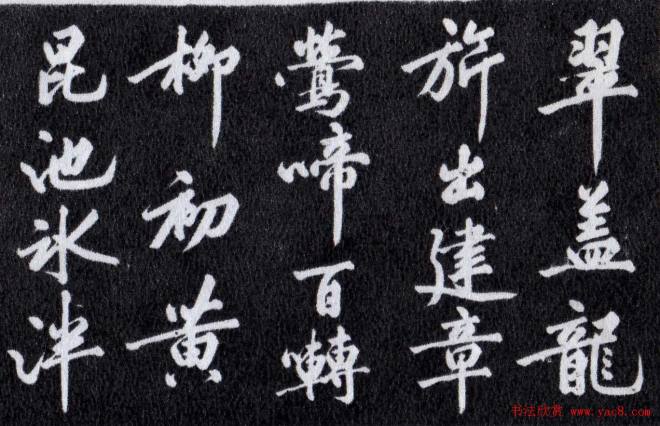 翠盖龍
旂出建章
鶯啼百囀
柳初黄
昆池氷泮
书法欣赏 www.yac8.com